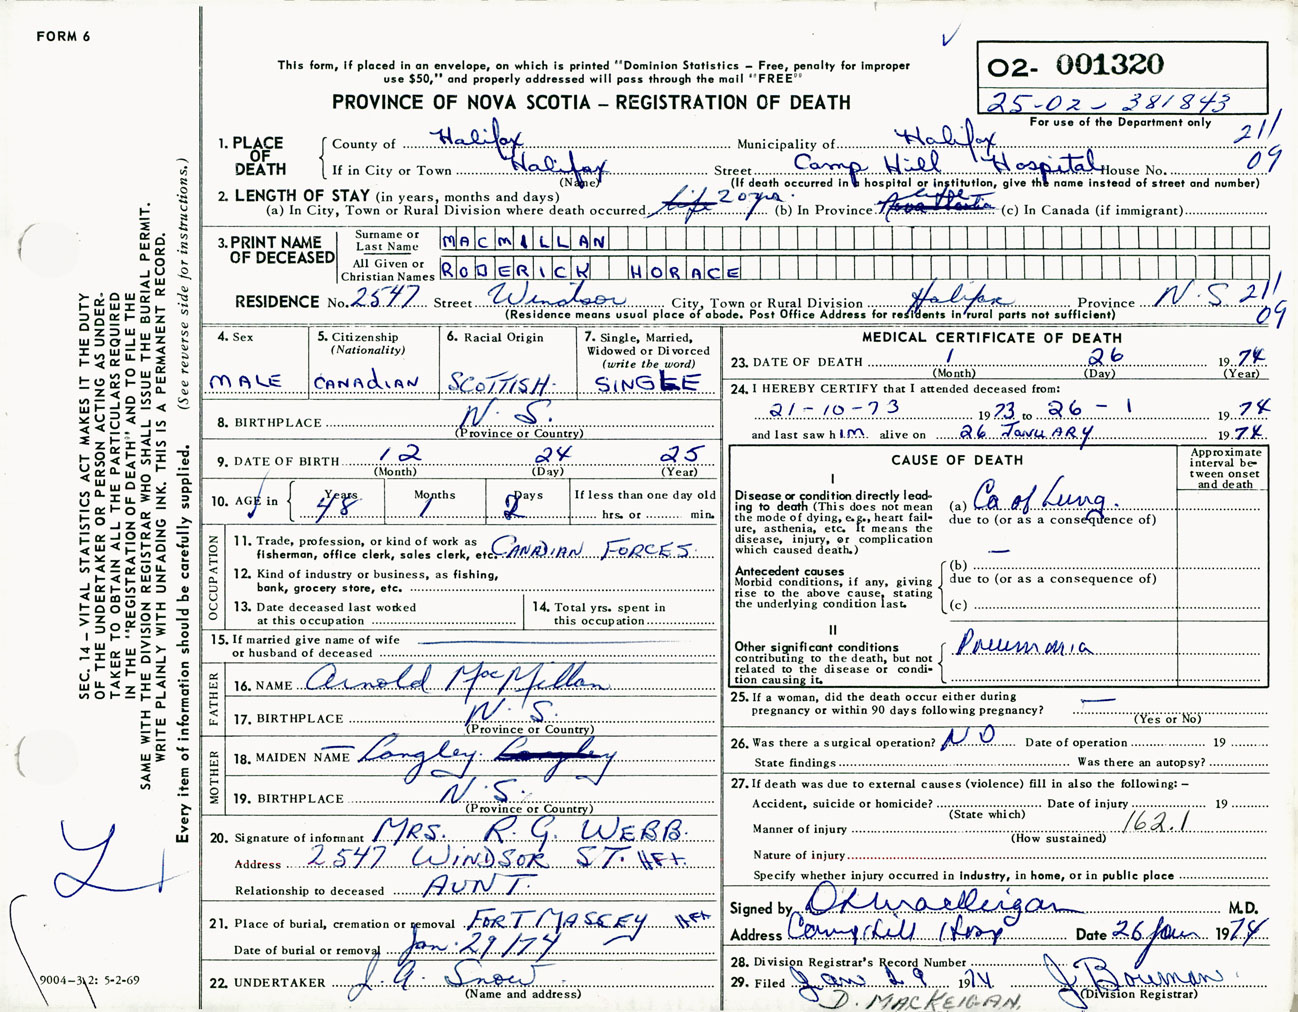 FORM 6
This form, if placed in an envelope, on which is printed "Dominion Statistics – Free, penalty for improper
use $50," and properly addressed will pass through the mail "FREE"
PROVINCE OF NOVA SCOTIA – REGISTRATION OF DEATH
02- 001320
25-02 – 381843
For use of the Department only
211
09
1. PLACE OF DEATH
County of Halifax Municipality of Halifax
If in City or Town Halifax Street Camp Hill Hospital House No.
(Name) (If death occurred in a hospital or institution, give the name instead of street and number)
2. LENGTH OF STAY (in years, months and days)
(a) In City, Town or Rural Division where death occurred 20 yrs. (b) In Province Life (c) In Canada (if immigrant)
3. PRINT NAME OF DECEASED
Surname or Last Name MACMILLAN
All Given or Christian Names RODERICK HORACE
RESIDENCE No. 2547 Street Windsor City, Town or Rural Division Halifax Province N.S. 211
09
(Residence means usual place of abode. Post Office Address for residents in rural parts not sufficient)
4. Sex
MALE
5. Citizenship
(Nationality)
CANADIAN
6. Racial Origin
SCOTTISH.
7. Single, Married,
Widowed or Divorced
(write the word)
SINGLE
8. BIRTHPLACE N.S.
(Province or Country)
9. DATE OF BIRTH 12 24 25
(Month) (Day) (Year)
10. AGE in
Years 48
Months 1
Days 2
If less than one day old
hrs. or min.
OCCUPATION
11. Trade, profession, or kind of work as
fisherman, office clerk, sales clerk, etc. CANADIAN FORCES.
12. Kind of industry or business, as fishing,
bank, grocery store, etc.
13. Date deceased last worked
at this occupation
14. Total yrs. spent in
this occupation
15. If married give name of wife
or husband of deceased
FATHER
16. NAME Arnold MacMillan
17. BIRTHPLACE N.S.
(Province or Country)
MOTHER
18. MAIDEN NAME Langley.
19. BIRTHPLACE N.S.
(Province or Country)
20. Signature of informant MRS. R. G. WEBB.
Address 2547 WINDSOR ST. HFX
Relationship to deceased AUNT.
21. Place of burial, cremation or removal FORT MASSEY HFX
Date of burial or removal Jan. 29/74
22. UNDERTAKER J. A. Snow
(Name and address)
MEDICAL CERTIFICATE OF DEATH
23. DATE OF DEATH 1 26 1974
(Month) (Day) (Year)
24. I HEREBY CERTIFY that I attended deceased from:
21-10-73 1973 to 26 – 1 1974
and last saw him alive on 26 JANUARY 1974
CAUSE OF DEATH
Approximate
interval be-
tween onset
and death
I
Disease or condition directly lead-
ing to death (This does not mean
the mode of dying, e.g., heart fail-
ure, asthenia, etc. It means the
disease, injury, or complication
which caused death.)
(a) Ca of Lung.
due to (or as a consequence of)
—
Antecedent causes
Morbid conditions, if any, giving
rise to the above cause, stating
the underlying condition last.
(b)
due to (or as a consequence of)
(c)
II
Other significant conditions
contributing to the death, but not
related to the disease or condi-
tion causing it.
Pneumonia
25. If a woman, did the death occur either during
pregnancy or within 90 days following pregnancy? —
(Yes or No)
26. Was there a surgical operation? NO Date of operation 19
State findings Was there an autopsy?
27. If death was due to external causes (violence) fill in also the following: –
Accident, suicide or homicide? Date of injury 19
(State which)
Manner of injury 162.1
(How sustained)
Nature of injury
Specify whether injury occurred in industry, in home, or in public place
Signed by M.D.
Address Camp Hill Hosp Date 26 Jan 1974
28. Division Registrar's Record Number
29. Filed Jan 29 1974 J Bowman
(Division Registrar)
D. MACKEIGAN.
SEC. 14 – VITAL STATISTICS ACT MAKES IT THE DUTY
OF THE UNDERTAKER OR PERSON ACTING AS UNDER-
TAKER TO OBTAIN ALL THE PARTICULARS REQUIRED
IN THE "REGISTRATION OF DEATH" AND TO FILE THE
SAME WITH THE DIVISION REGISTRAR WHO SHALL ISSUE THE BURIAL PERMIT.
WRITE PLAINLY WITH UNFADING INK. THIS IS A PERMANENT RECORD.
Every item of information should be carefully supplied. (See reverse side for instructions.)
9004-312: 5-2-69